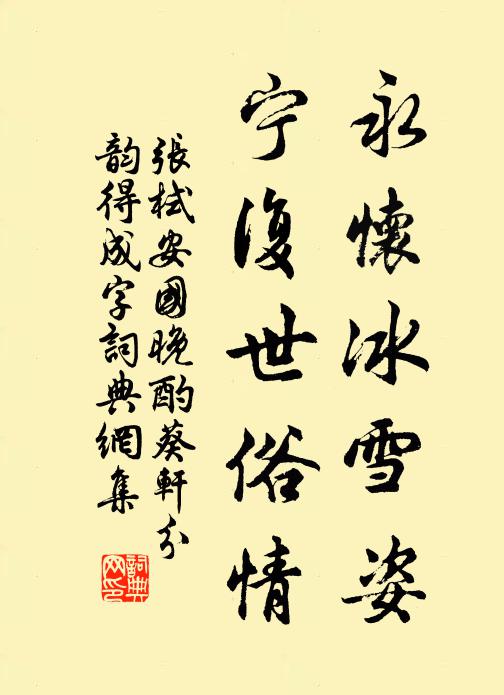 永懷冰雪姿
宁復世俗情
張栻安國晚酌葵軒分
韵得成字詞典網集
詞典
网印